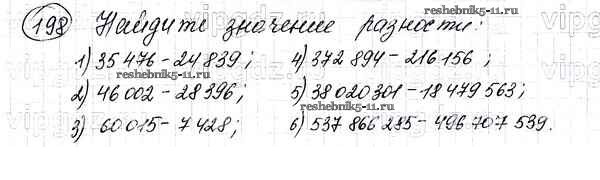 198 Найдите значение разности:
1) 35 476 - 24 839; 4) 372 894 - 216 156 ;
reshebnik5-11.ru
reshebnik5-11.ru
2) 46 002 - 28 396; 5) 38 020 301 - 18 479 563;
reshebnik5-11.ru
3) 60 015 - 7 428; 6) 537 866 235 - 496 707 539.